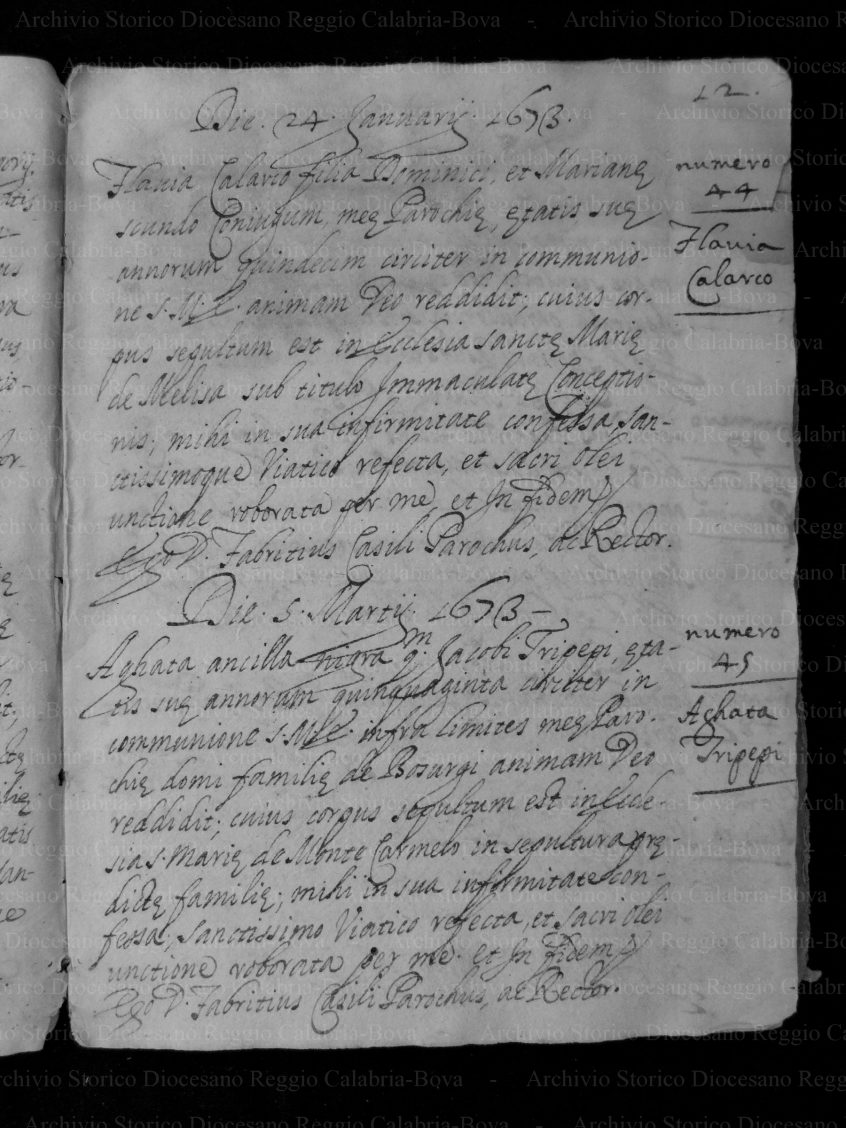 12.
Die. 24. Januarij. 1673.
numero
44
Flavia
Calarco
Flavia Calarco filia Dominici, et Marianę
scundo Coniugum, meę Parochię, ętatis suę
annorum quindecim circiter in communio-
ne S. M. E. animam Deo reddidit; cuius cor-
pus sepultum est in Ecclesia sanctę Marię
de Melisa sub titulo Immaculatę Conceptio-
nis; mihi in sua infirmitate confessa, san-
ctissimoque Viatico refecta, et sacri olei
unctione roborata per me, et In fidem
Ego D. Fabritius Casili Parochus, ac Rector.
Die. 5. Martij. 1673-
numero
45
Aghata
Tripepi
Aghata ancilla nigra qm. Jacobi Tripepi, ęta-
tis suę annorum quinquaginta circiter in
communione S. M. E. infra limites meę Paro-
chię domi familię de Bosurgi animam Deo
reddidit; cuius corpus sepultum est in Eccle-
sia S. Marię de Monte Carmelo in sepultura prę-
dictę familię; mihi in sua infirmitate con-
fessa; sanctissimo Viatico refecta, et sacri olei
unctione roborata per me. et In fidem
Ego D. Fabritius Casili Parochus, ac Rector.
Archivio Storico Diocesano Reggio Calabria-Bova